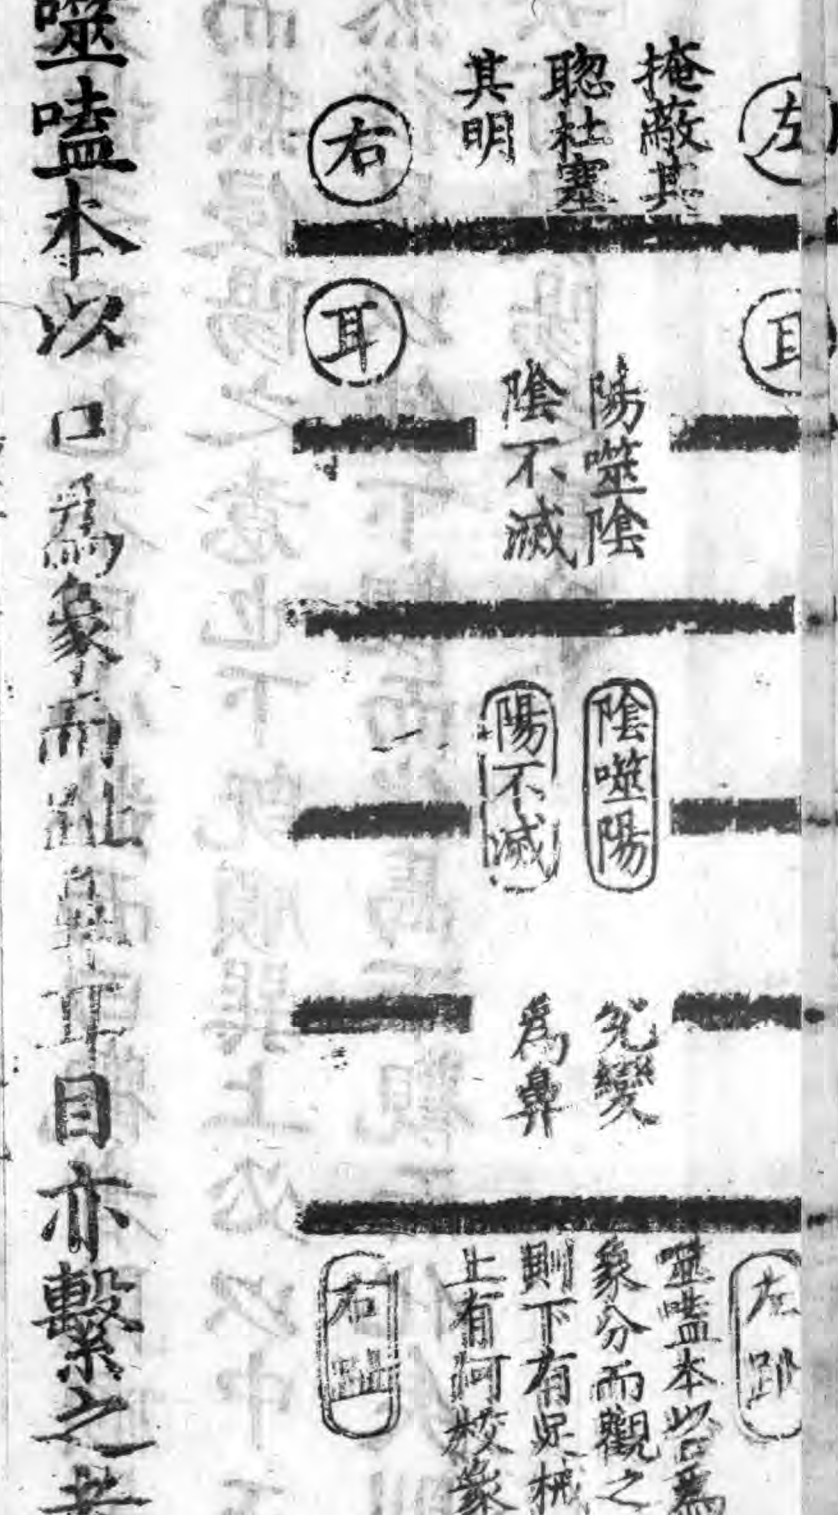 左
掩蔽其
聦杜塞
其明
右
耳
耳
陽噬陰
陰不滅
陰噬陽
陽不滅
變
為鼻
左趾
噬嗑本以口為
象分而觀之
則下有足械
上有何校象
右趾
噬嗑本以口為象而趾鼻耳目亦繫之者